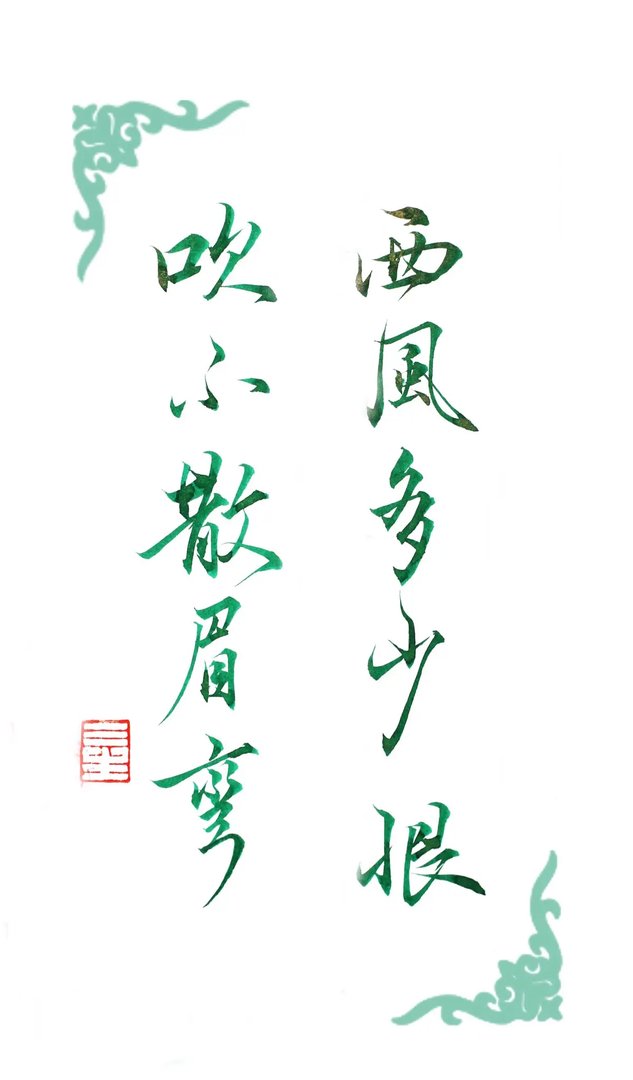 西風多少恨
吹不散眉彎